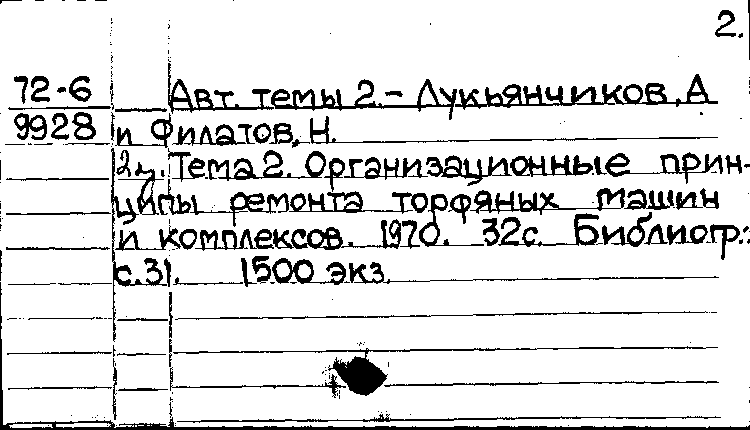 2.
72-6 Авт. темы 2.- Лукьянчиков, А
9928 и Филатов, Н.
Тема 2. Организационные прин-
ципы ремонта торфяных машин
и комплексов. 1970. 32с. Библиогр.:
с.31. 1500 экз.